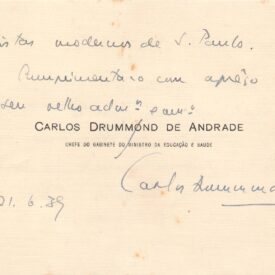 istas modernos de S. Paulo.
Cumprimenta-o com apreço
seu velho ador.ºr e am.º
CARLOS DRUMMOND DE ANDRADE
CHEFE DO GABINETE DO MINISTRO DA EDUCAÇÃO E SAUDE
Carlos Drummond
21.6.39